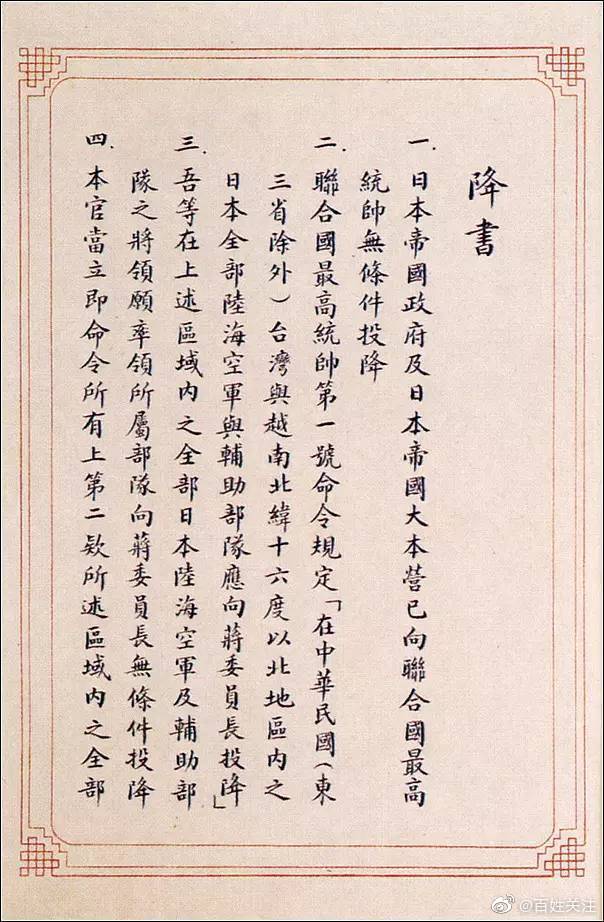 降書
一.日本帝國政府及日本帝國大本營已向聯合國最高
統帥無條件投降
二.聯合國最高統帥第一號命令規定「在中華民國(東
三省除外)台灣與越南北緯十六度以北地區內之
日本全部陸海空軍與輔助部隊應向蔣委員長投降」
三.吾等在上述區域內之全部日本陸海空軍及輔助部
隊之將領願率領所屬部隊向蔣委員長無條件投降
四.本官當立即命令所有上第二欵所述區域內之全部
@百姓关注